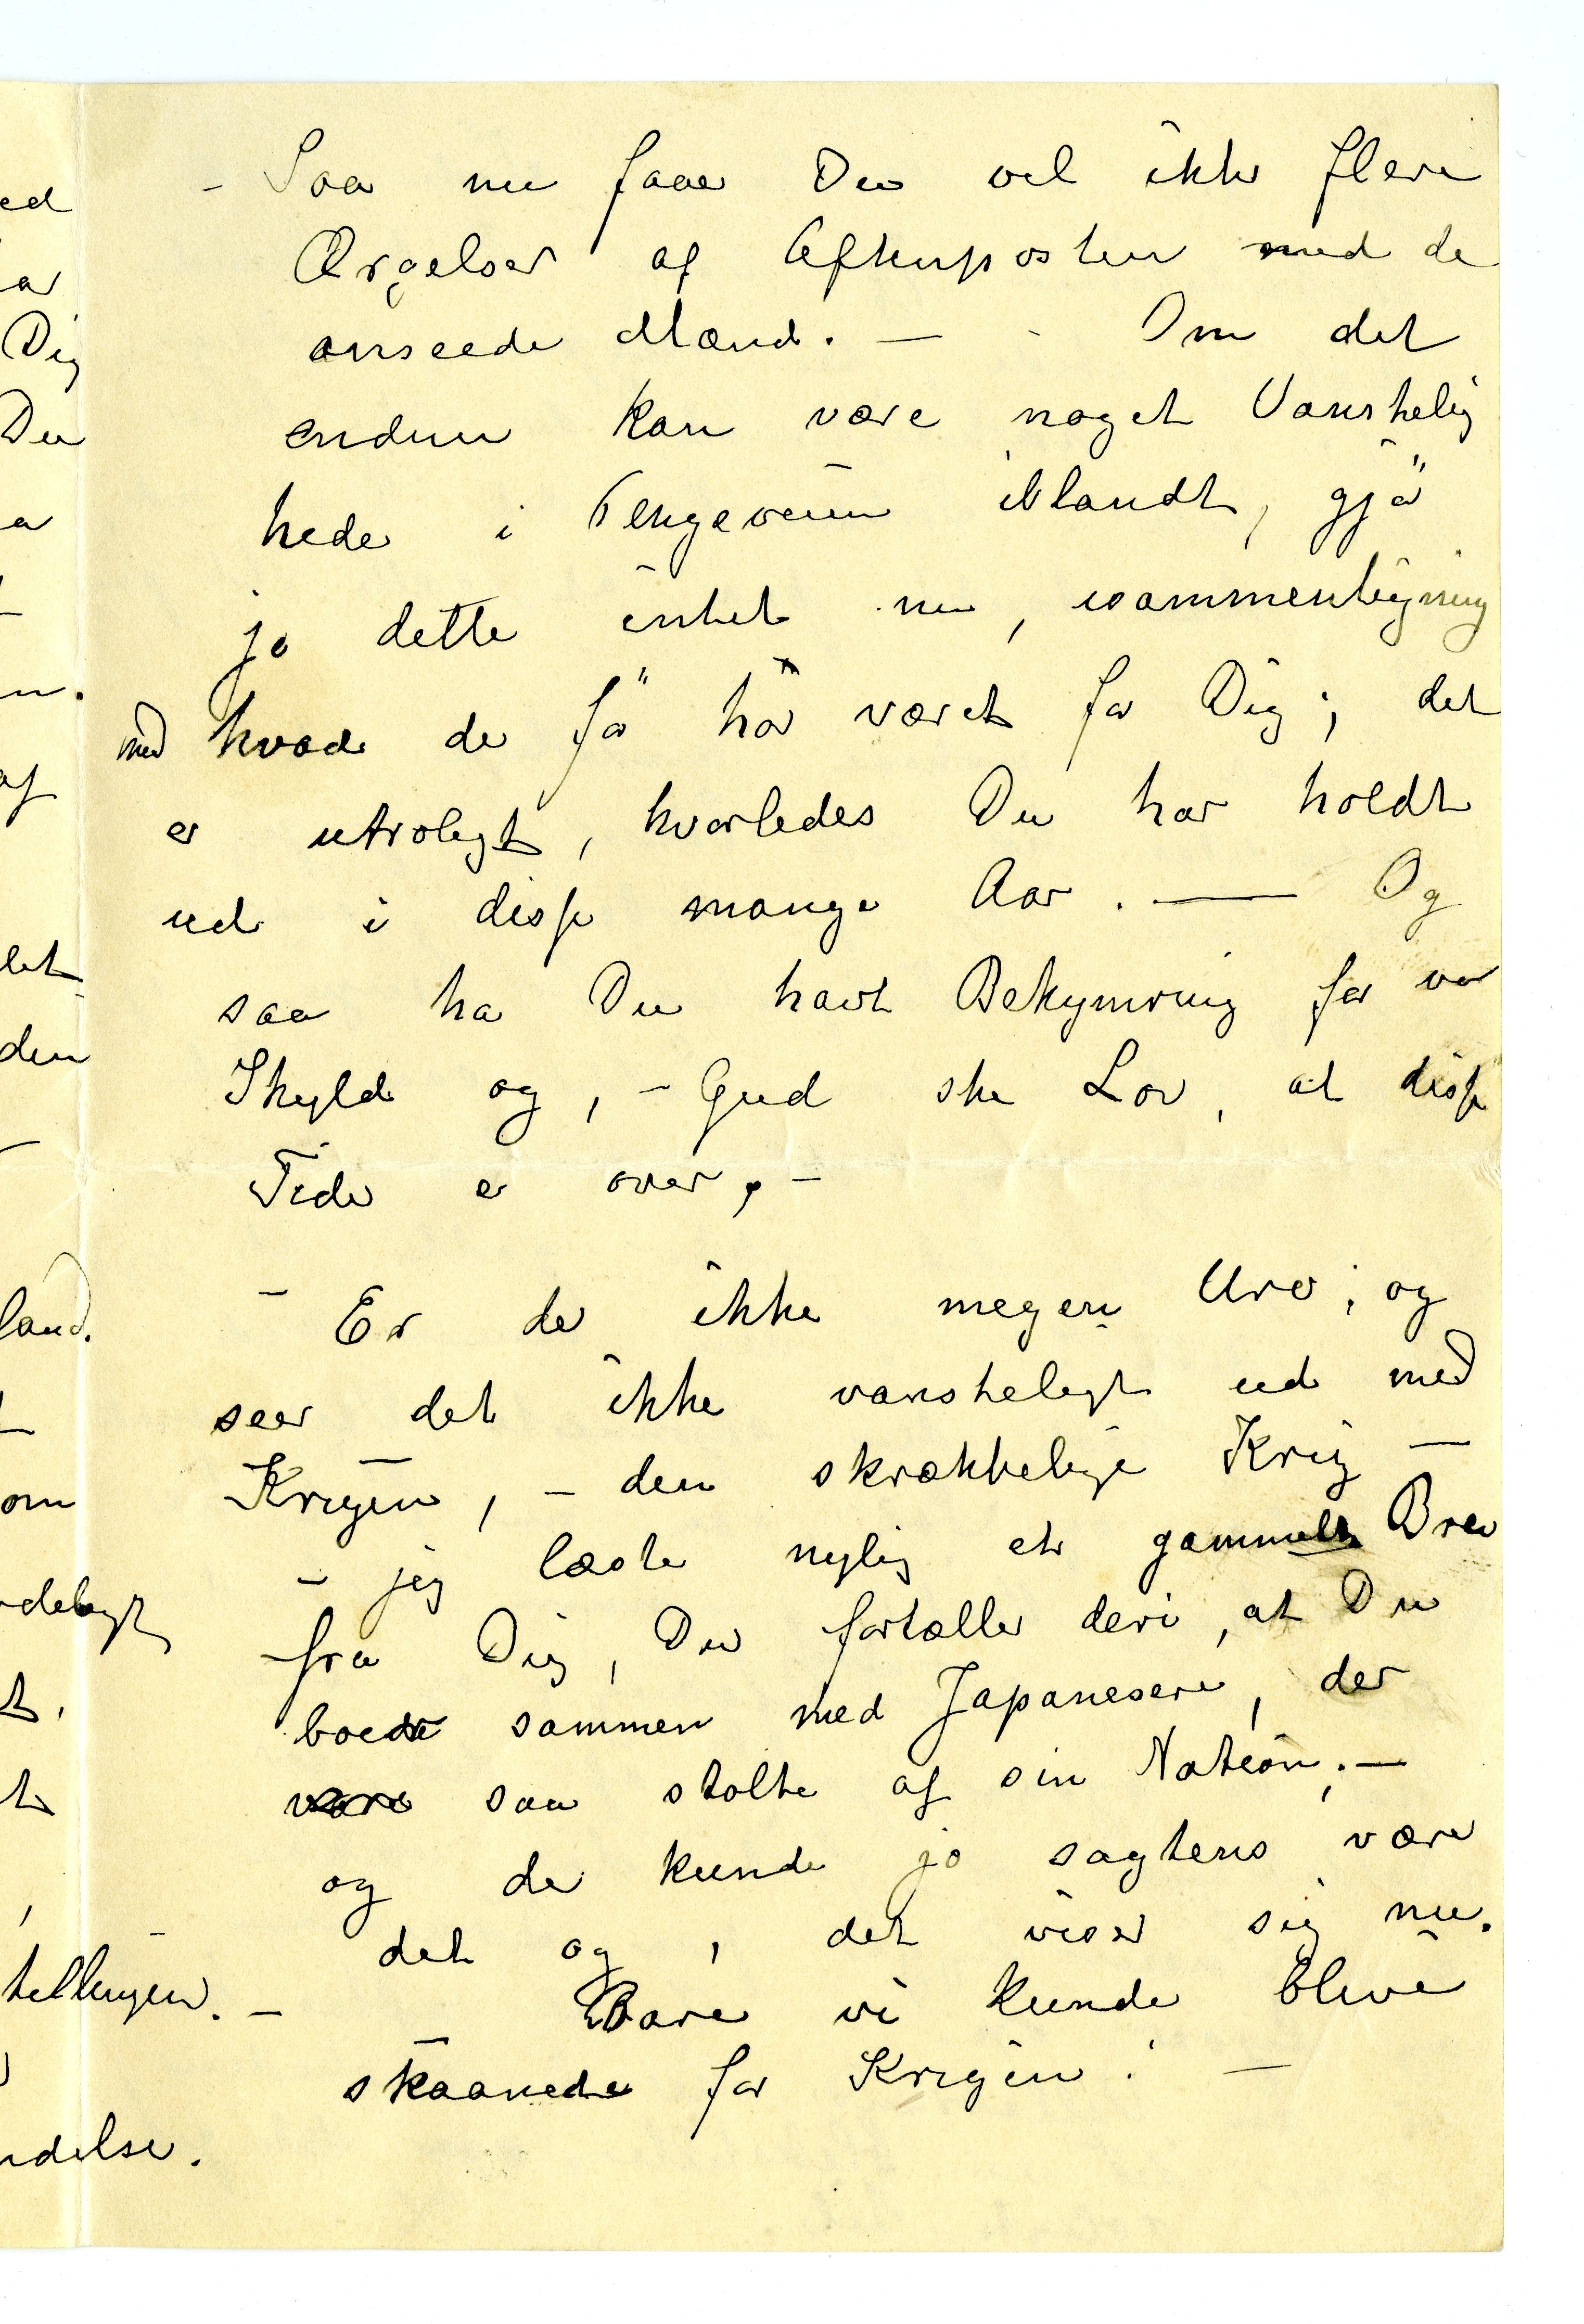 - Saa nu faaer Du vel ikke flere
Ærgelser af Aftenposten med de
anseede Mænd. — - Om det
endnu kan være noget Vanskelig
heder i Pengeveien iblandt, gjør
jo dette intet nu, isammenligning
med hvad det før har været for Dig; det
er utroligt, hvorledes Du har holdt
ud i disse mange Aar. — Og
saa har Du havt Bekymring for vor
Skyld og, - Gud ske Lov, at disse
Tider er over, -
- Er der ikke megen Uro; og
seer det ikke vanskeligt ud med
Krigen, - den skrækkelige Krig —
- jeg læste nylig et gammelt Brev
fra Dig, Du fortæller deri, at Du
boede sammen med Japanesere, der
vare saa stolte af sin Nation; —
og de kunde jo sagtens være
det og, det viser sig nu.
- Bare vi kunde blive
skaanede for Krigen! —
ed
ar
Dig
Du
a
n.
af
let
den
land.
t
om
delegt
t,
t
tellingen.
ndelse.